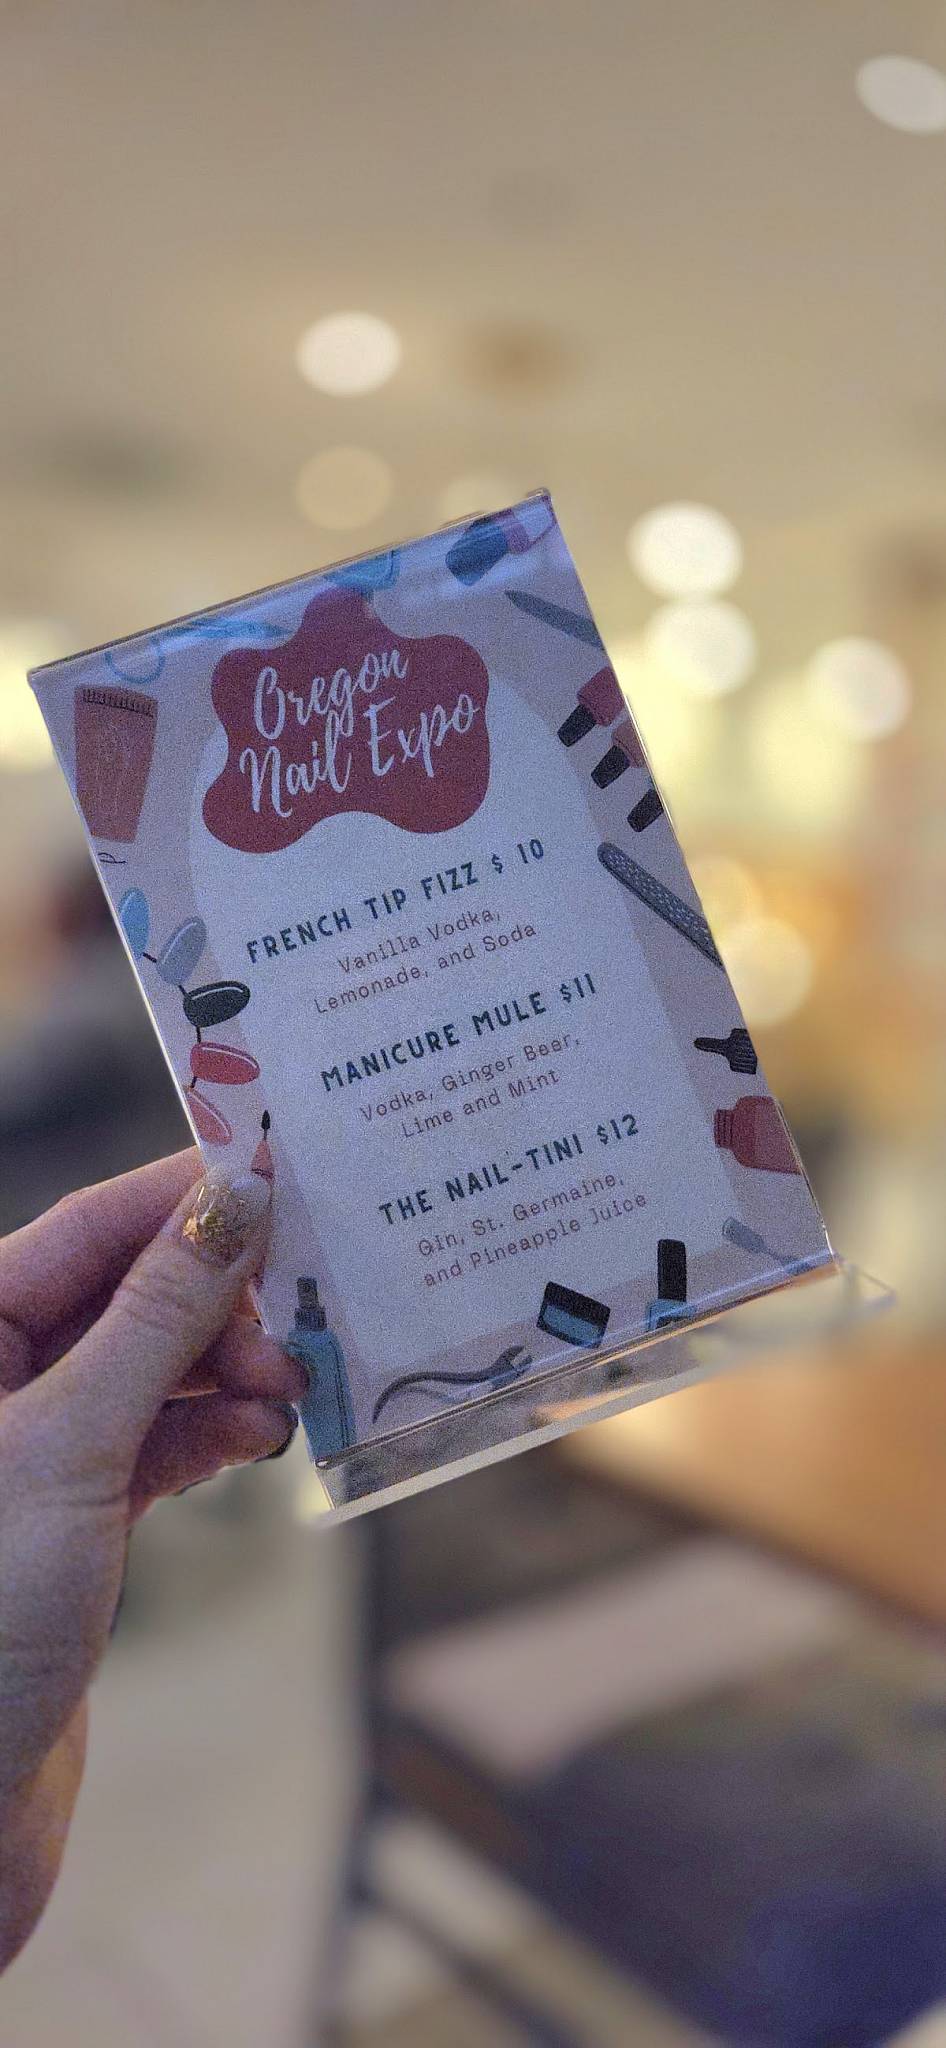 Oregon
Nail Expo
FRENCH TIP FIZZ $ 10
Vanilla Vodka,
Lemonade, and Soda
MANICURE MULE $11
Vodka, Ginger Beer,
Lime and Mint
THE NAIL-TINI $12
Gin, St. Germaine,
and Pineapple Juice